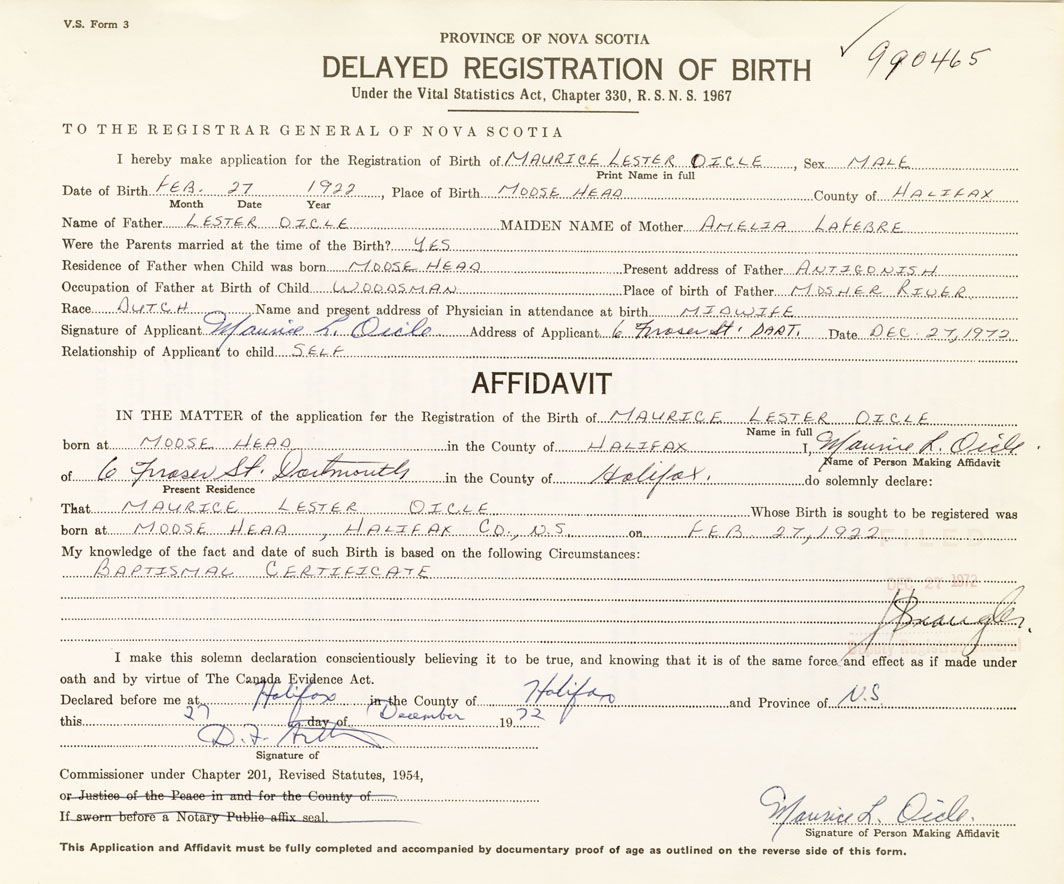 V.S. Form 3
PROVINCE OF NOVA SCOTIA
990465
DELAYED REGISTRATION OF BIRTH
Under the Vital Statistics Act, Chapter 330, R. S. N. S. 1967
TO THE REGISTRAR GENERAL OF NOVA SCOTIA
I hereby make application for the Registration of Birth of MAURICE LESTER OICLE, Sex MALE
Print Name in full
Date of Birth FEB. 27 1922, Place of Birth MOOSE HEAD County of HALIFAX
Month Date Year
Name of Father LESTER OICLE MAIDEN NAME of Mother AMELIA LAFEBRE
Were the Parents married at the time of the Birth? YES
Residence of Father when Child was born MOOSE HEAD Present address of Father ANTIGONISH
Occupation of Father at Birth of Child WOODSMAN Place of birth of Father MOSHER RIVER
Race DUTCH Name and present address of Physician in attendance at birth MIDWIFE
Signature of Applicant Maurice L. Oicle Address of Applicant 6 Fraser St. DART. Date DEC 27, 1972
Relationship of Applicant to child SELF
AFFIDAVIT
IN THE MATTER of the application for the Registration of the Birth of MAURICE LESTER OICLE
Name in full
born at MOOSE HEAD in the County of HALIFAX I, Maurice L. Oicle.
Name of Person Making Affidavit
of 6 Fraser St. Dartmouth in the County of Halifax. do solemnly declare:
Present Residence
That MAURICE LESTER OICLE Whose Birth is sought to be registered was
born at MOOSE HEAD, HALIFAX CO., N.S. on FEB. 27, 1922
FILED
My knowledge of the fact and date of such Birth is based on the following Circumstances:
BAPTISMAL CERTIFICATE
DEC 27 1972
Deputy Registrar General
I make this solemn declaration conscientiously believing it to be true, and knowing that it is of the same force and effect as if made under
oath and by virtue of The Canada Evidence Act.
Declared before me at Halifax in the County of Halifax and Province of N.S.
this 27 day of December 1972
D. F.
Signature of
Commissioner under Chapter 201, Revised Statutes, 1954,
or Justice of the Peace in and for the County of
If sworn before a Notary Public affix seal.
Maurice L. Oicle.
Signature of Person Making Affidavit
This Application and Affidavit must be fully completed and accompanied by documentary proof of age as outlined on the reverse side of this form.